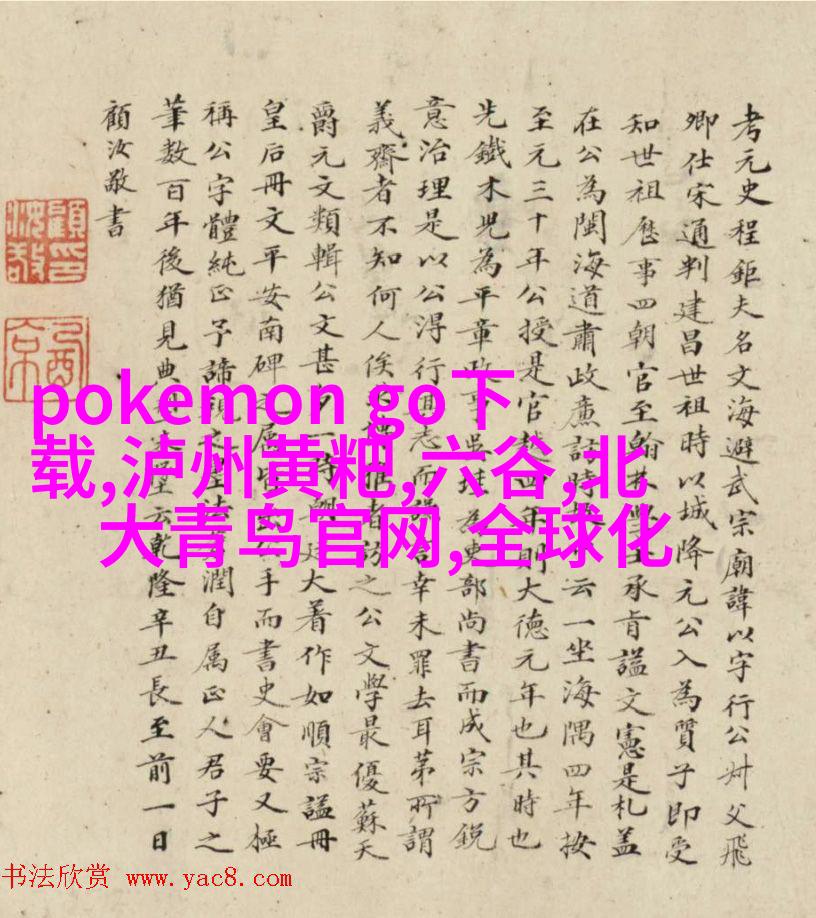 考元史程鉅夫名文海避武宗廟諱以字行公叔父飛
卿仕宋通判建昌世祖時以城降元公入為質子即受
知世祖歷事四朝官至翰林學士承旨謚文憲是札蓋
在公為閩海道肅政廉訪時云一坐海隅四年按
至元三十年公授是官越四年則大德元年也其時也
先鐵木兒為平章政事為吏部尚書而成宗方銳
意治理是以公得行其志而幸未罪去耳苐所謂
義齋者不知何人俟訪之公文學最優蘇天
爵元文類輯公文甚一時朝廷大著作如順宗謚冊
皇后冊文平安南碑手而書史會要又極
稱公字體純正潤自属正人君子之
筆数百年後猶見典云乾隆辛丑長至前一日
顧汝敬書
顧印汝敬
pokemon go下
载,泸州黄粑,六谷,北
大青鸟官网,全球化
书法欣赏 www.yac8.com